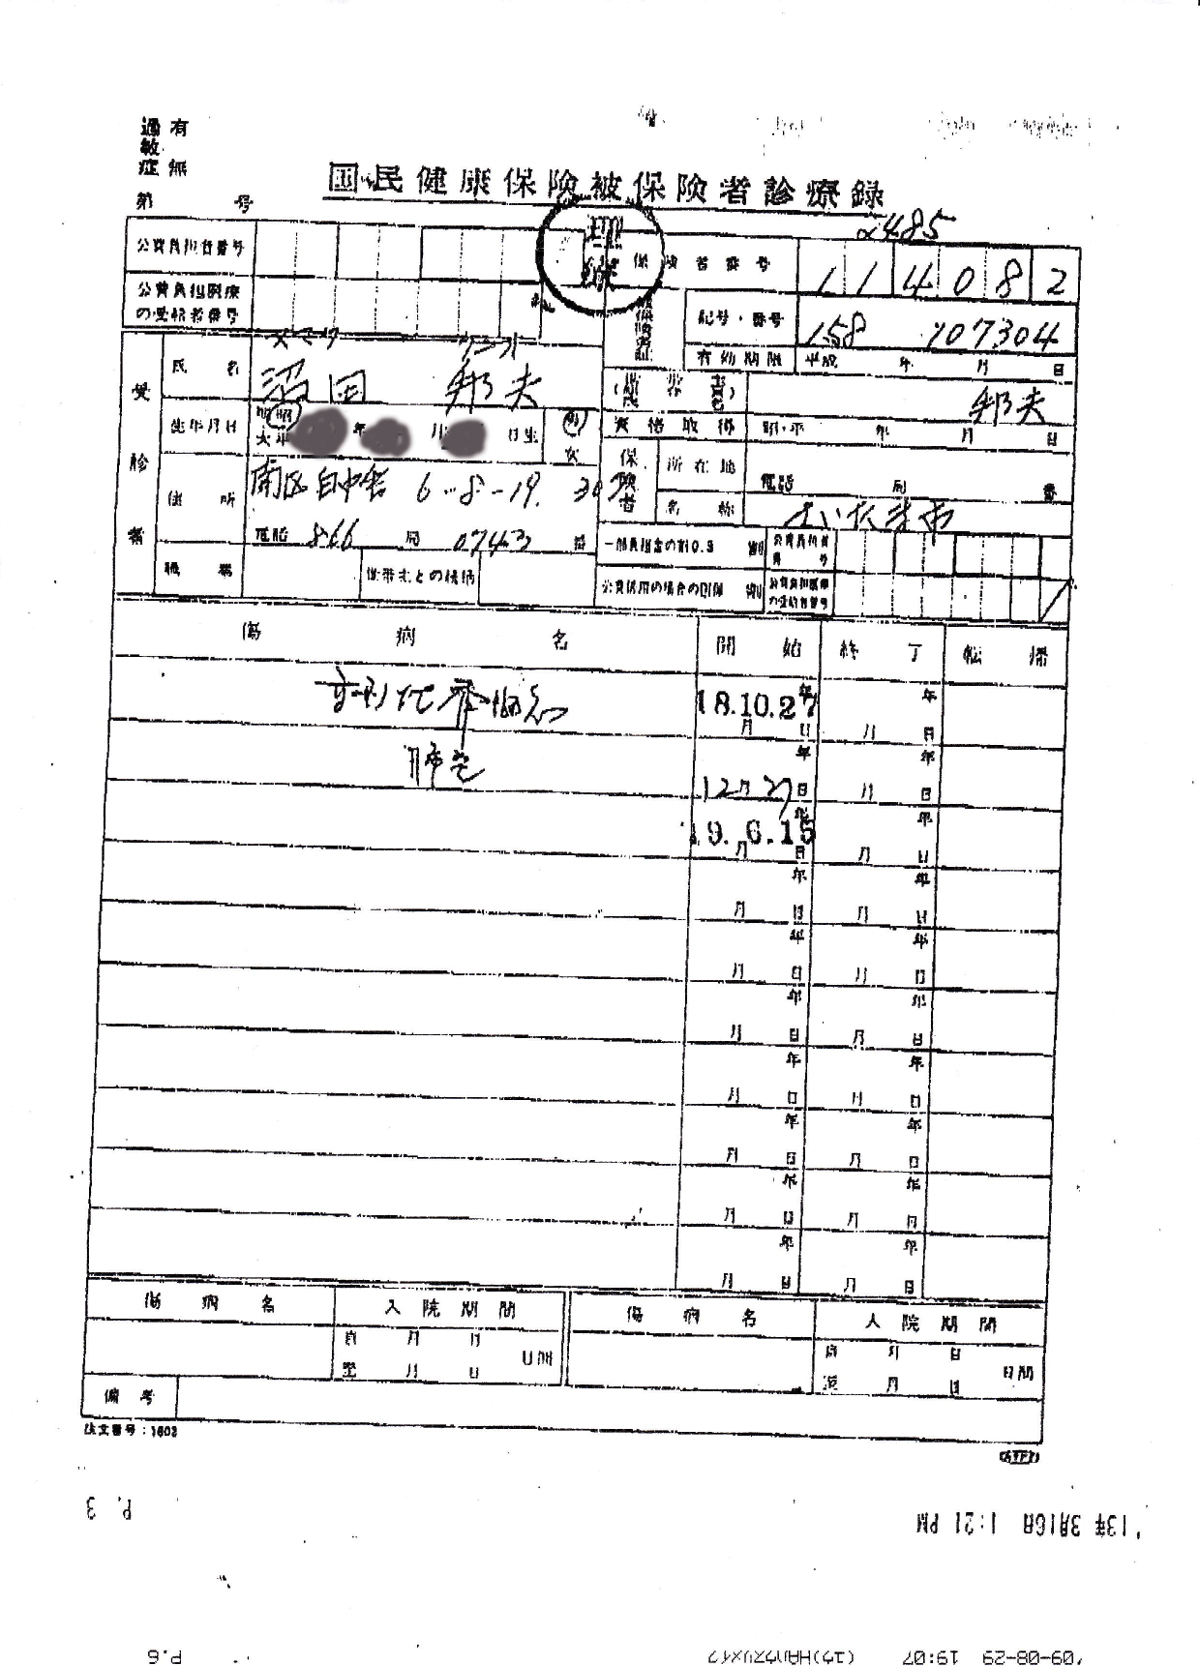 過敏症 有 無
国民健康保険被保険者診療録
第 号
2485
公費負担者番号
保険者番号 1 1 4 0 8 2
公費負担医療の受給者番号
被保険者証
記号・番号 158 107304
有効期限 平成 年 月 日
受診者
氏名 邦夫
邦夫
生年月日 明 昭 大 平 年 月 日生 男 女
資格取得 昭・平 年 月 日
住所 南区 6-8-19. 303
電話 866 局 0743 番
保険者
所在地
電話 局 番
名称 さいたま市
職業
世帯主との続柄
一部負担金の割合 割
公費負担者番号
公費併用の場合の割合 割
公費負担医療の受給者番号
傷病名 開始 終了 転帰
18.10.27
年 月 日
12月27日
年 月 日
19.6.15
年 月 日
年 月 日 年 月 日
年 月 日 年 月 日
年 月 日 年 月 日
年 月 日 年 月 日
年 月 日 年 月 日
年 月 日 年 月 日
年 月 日 年 月 日
傷病名 入院期間 傷病名 入院期間
自 月 日
至 月 日 日間
自 月 日
至 月 日 日間
備考
注文番号:1603
P. 3
'13年 3月16日 1:21 PM
'09-08-29 19:07
P.6